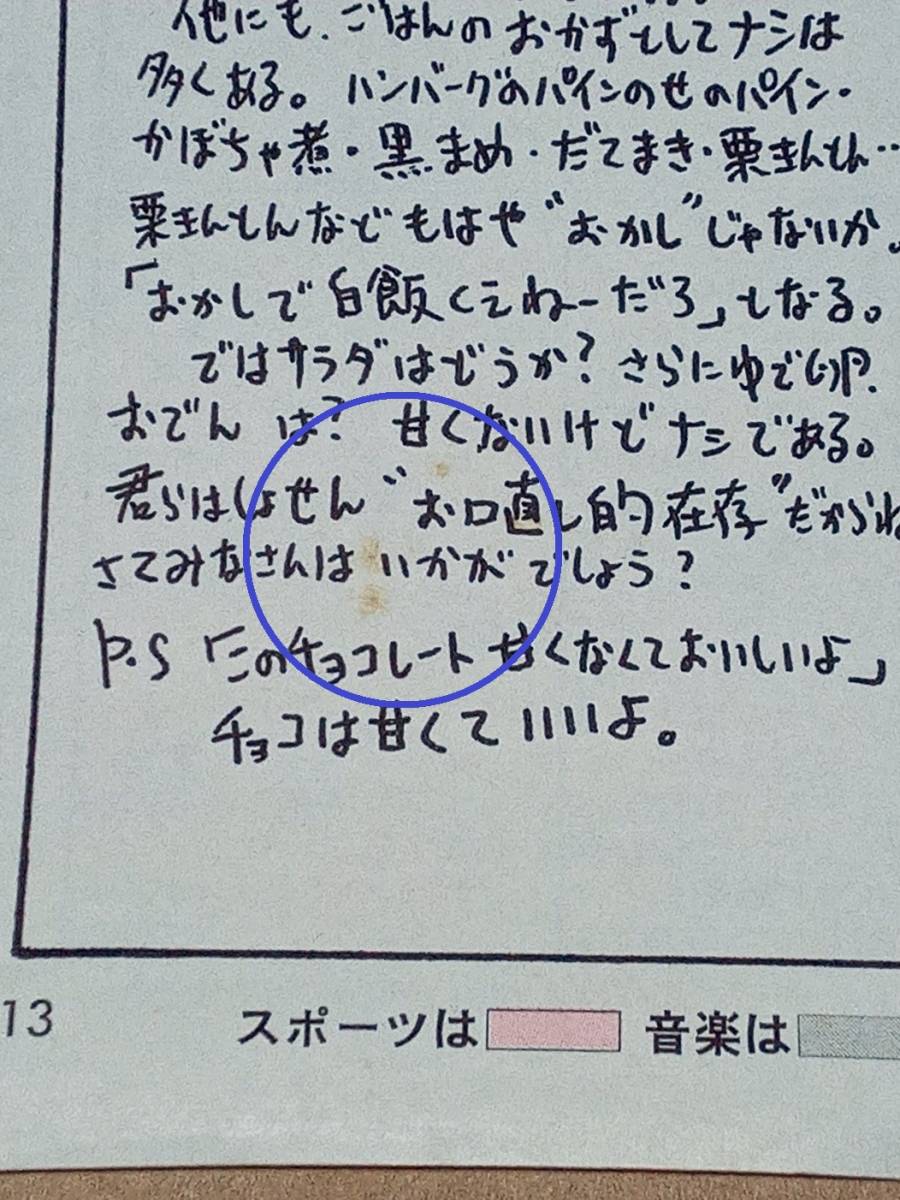 他にも、ごはんのおかずとしてナシは
多くある。ハンバーグのパインのせのパイン・
かぼちゃ煮・黒まめ・だてまき・栗きんとん…
栗きんとんなどもはや“おかし”じゃないか。
「おかしで白飯くえねーだろ」となる。
ではサラダはどうか?さらにゆで卵。
おでんは?甘くないけどナシである。
君らはしょせん“お口直し的在存”だからね
さてみなさんはいかがでしょう?
P.S「このチョコレート甘くなくておいしいよ」
チョコは甘くていいよ。
13 スポーツは 音楽は